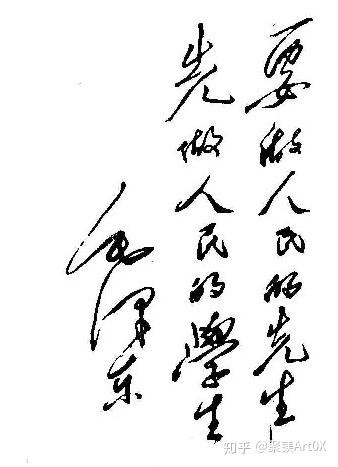 要做人民的先生
先做人民的學生
毛泽东
知乎 @聚蓁Art0X